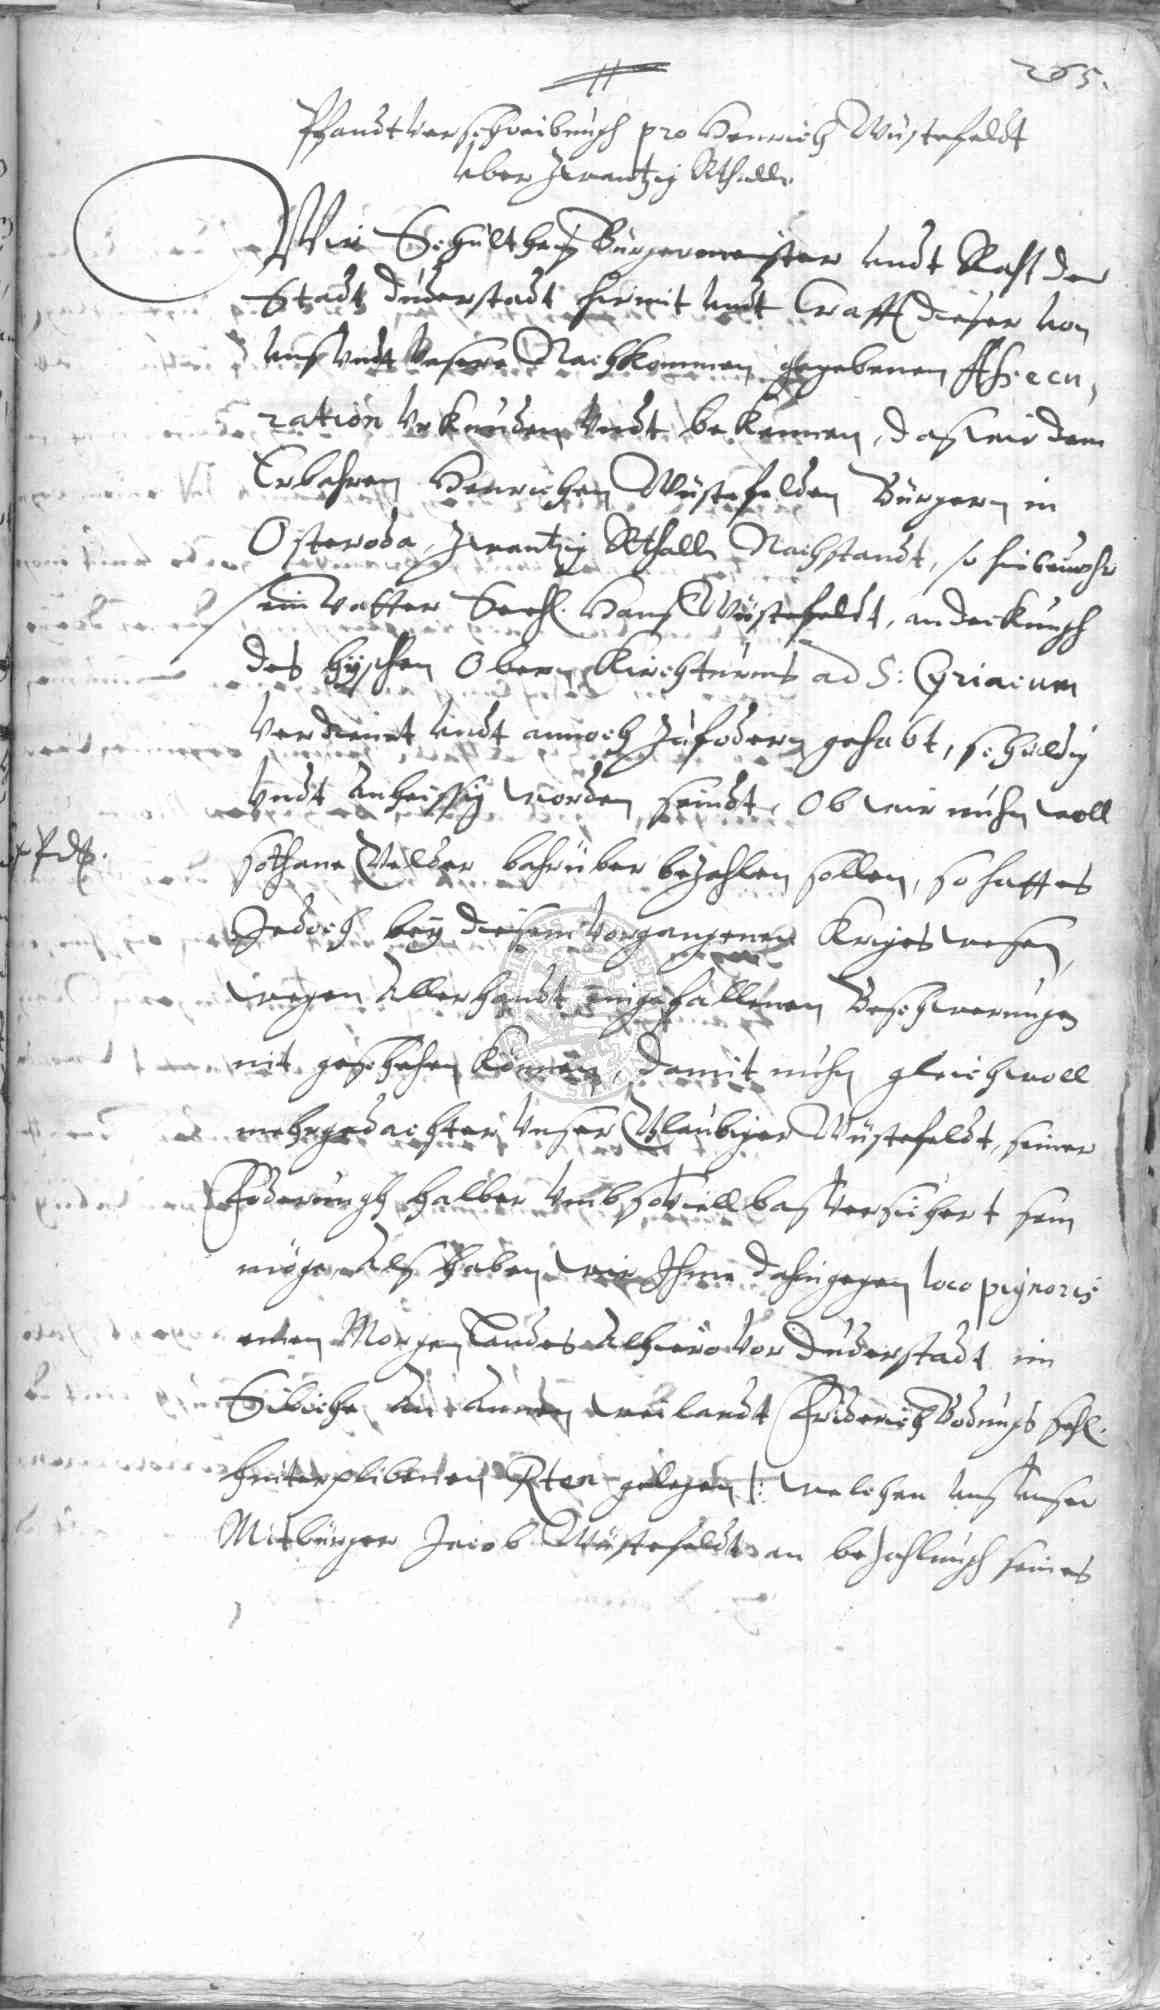 265.
Pfandtverschreibungh pro Henrich Wüstefeldt
uber Zwantzig Rthall.
Wir Schultheis Bürgermeister undt Raht der
Stadt Duderstadt hirmit undt Crafft dieser von
uns undt Unsere Nachkommen gegebenen Assecu,
ration Urkunden undt bekennen, das wir dem
Erbahren Henrichen Wüstefelden Bürgern in
Osteroda, Zwantzig Rthall Nachstandt, so hiebevohr
sein Vatter Seehl. Hans Wüstefeldt, an deckungh
des hyschen Obern Kirchturms ad S: Cyriacum
verdienet undt annoch zufodern gehabt, schuldig
undt anheissig worden seindt, Ob wir nuhn woll
sothane Gelder bahrüber bezahlen sollen, so hatt es
Jedoch bey diesem vorgangenen Kriges wesen,
wegen allerhandt eingefallenen Beschwerungen
nit geschehen können, damit nuhn gleichwoll
mehrgedachter unser Glaubiger Wüstefeldt, seiner
Foderungh halber umb soviell bas versichert sein
möge, Als haben wir Ihme dahingegen loco pignoris
einen Morgen Landes alhiero vor Duderstadt im
weilandt Friderich Bodungs sehl.
hinterplibenen gelegen /: welchen uns unser
Mitbürger Jacob Wüstefeldt an bezahlungh seines